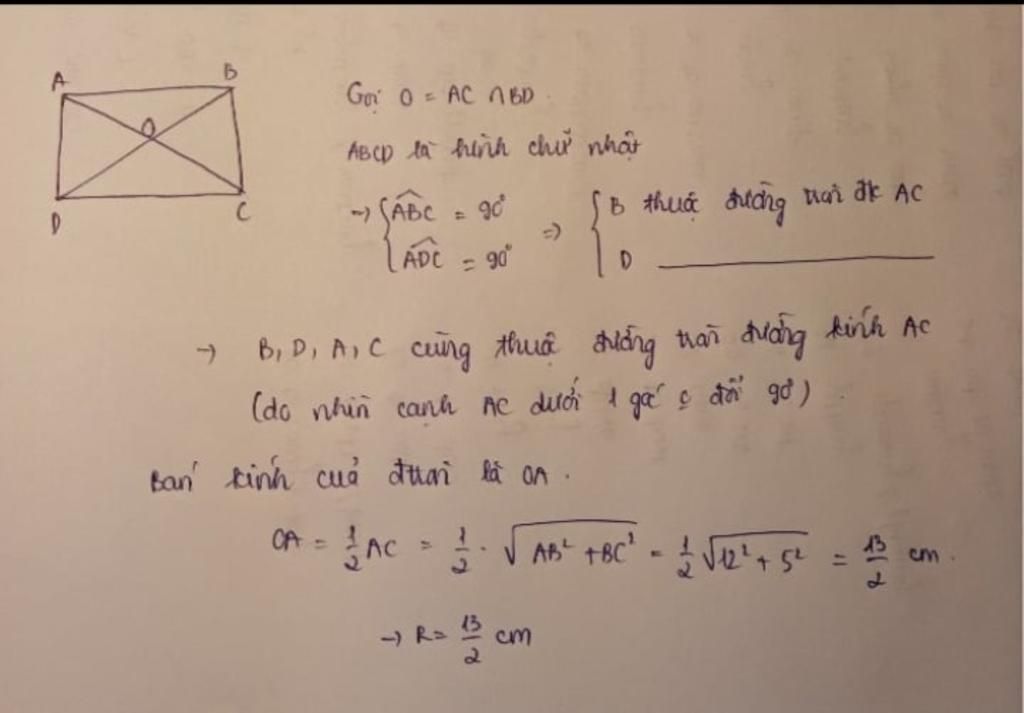 A
B
O
D
C
Gọi O = AC ∩ BD.
ABCD là hình chữ nhật
→ { ABC = 90° ⇒ { B thuộc đường tròn đk AC
ADC = 90° D ————
→ B, D, A, C cùng thuộc đường tròn đường kính AC
(do nhìn cạnh AC dưới 1 góc đổi 90°).
Bán kính của đtròn là OA.
OA = 1/2 AC = 1/2 . √(AB² + BC²) = 1/2 √(12² + 5²) = 13/2 cm.
→ R = 13/2 cm